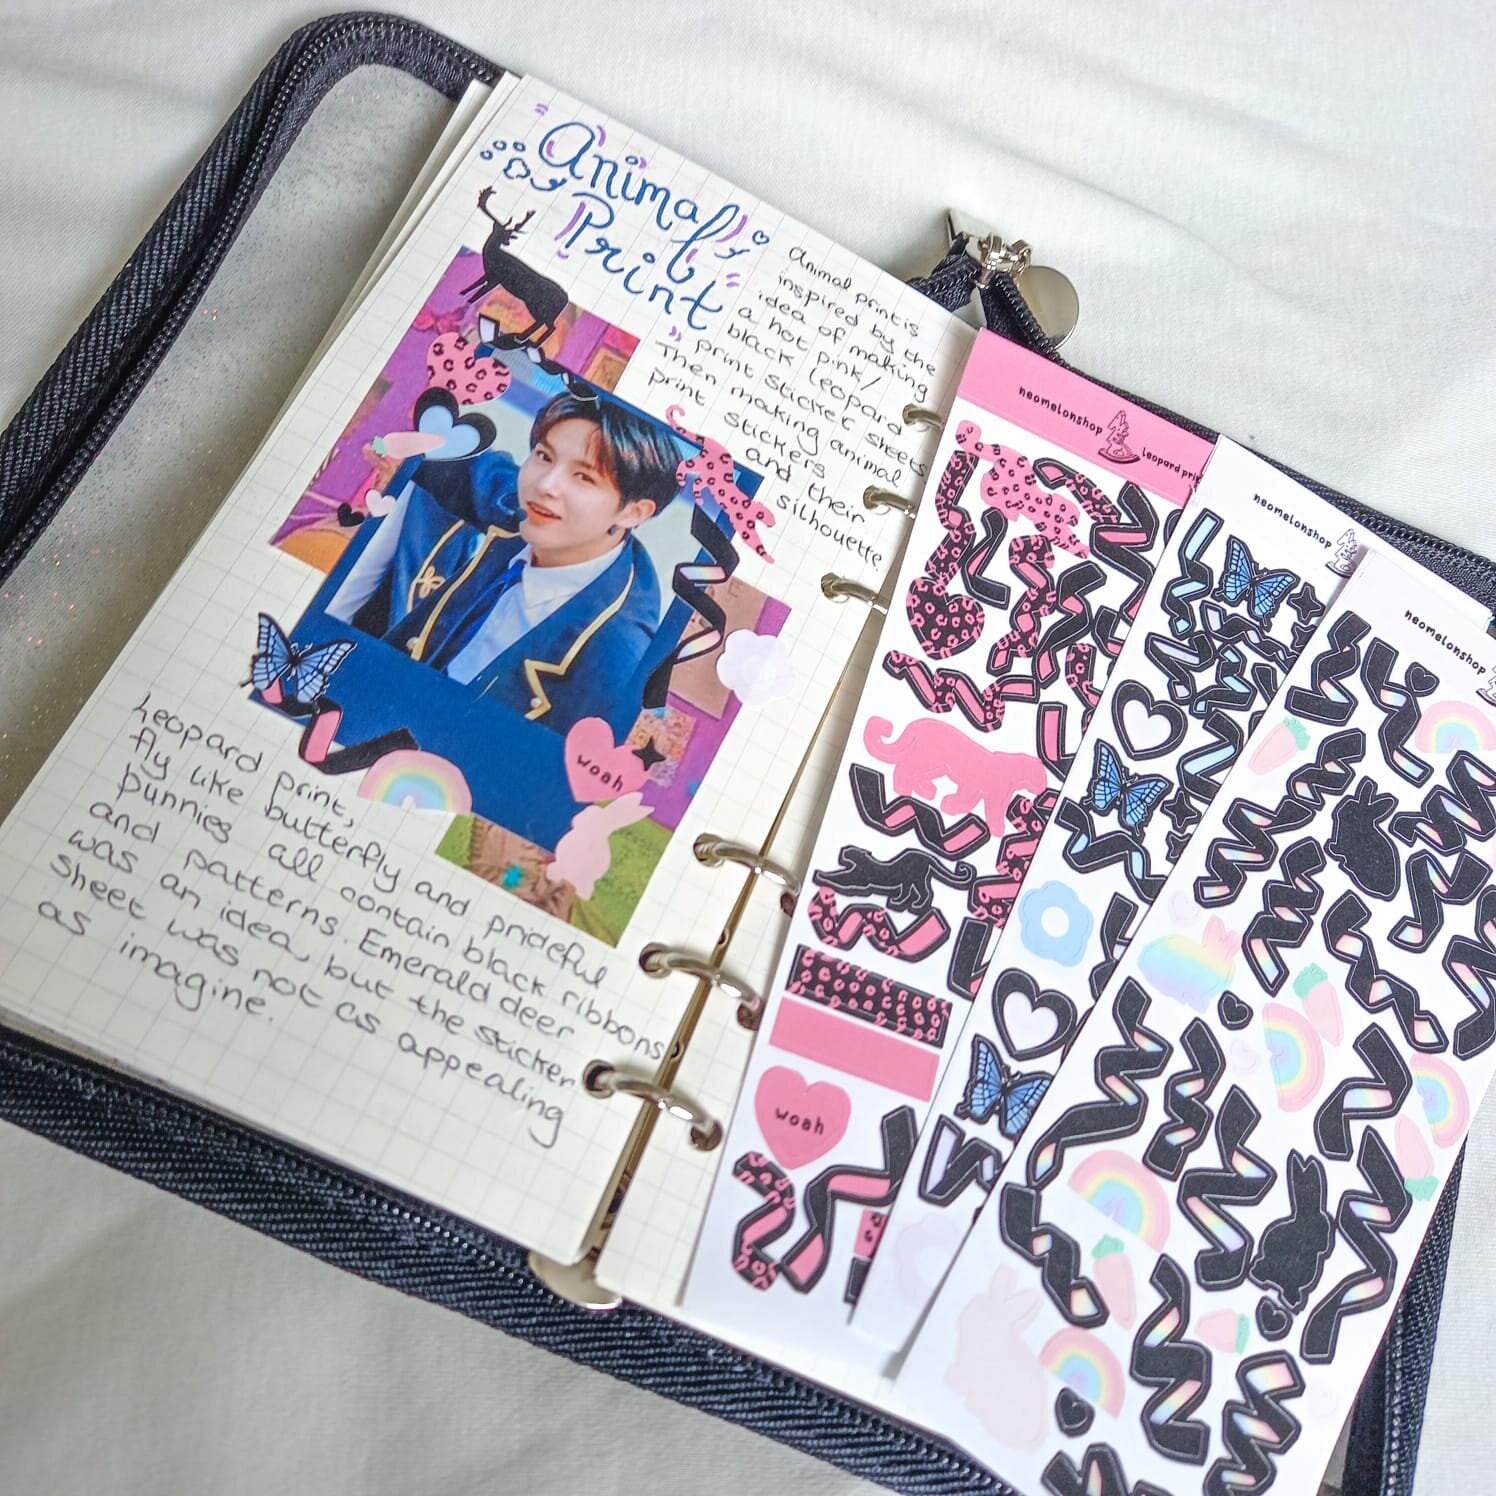 Animal
Print
Animal print is
inspired by the
idea of making
a hot pink/
black leopard
print sticker sheets
Then making animal
print stickers
and their
silhouette
woah
Leopard print,
fly like butterfly and prideful
bunnies all contain black ribbons
and patterns. Emerald deer
was an idea, but the sticker
sheet was not as appealing
as imagine.
neomelonshop
leopard pri
woah
neomelonshop
neomelonshop